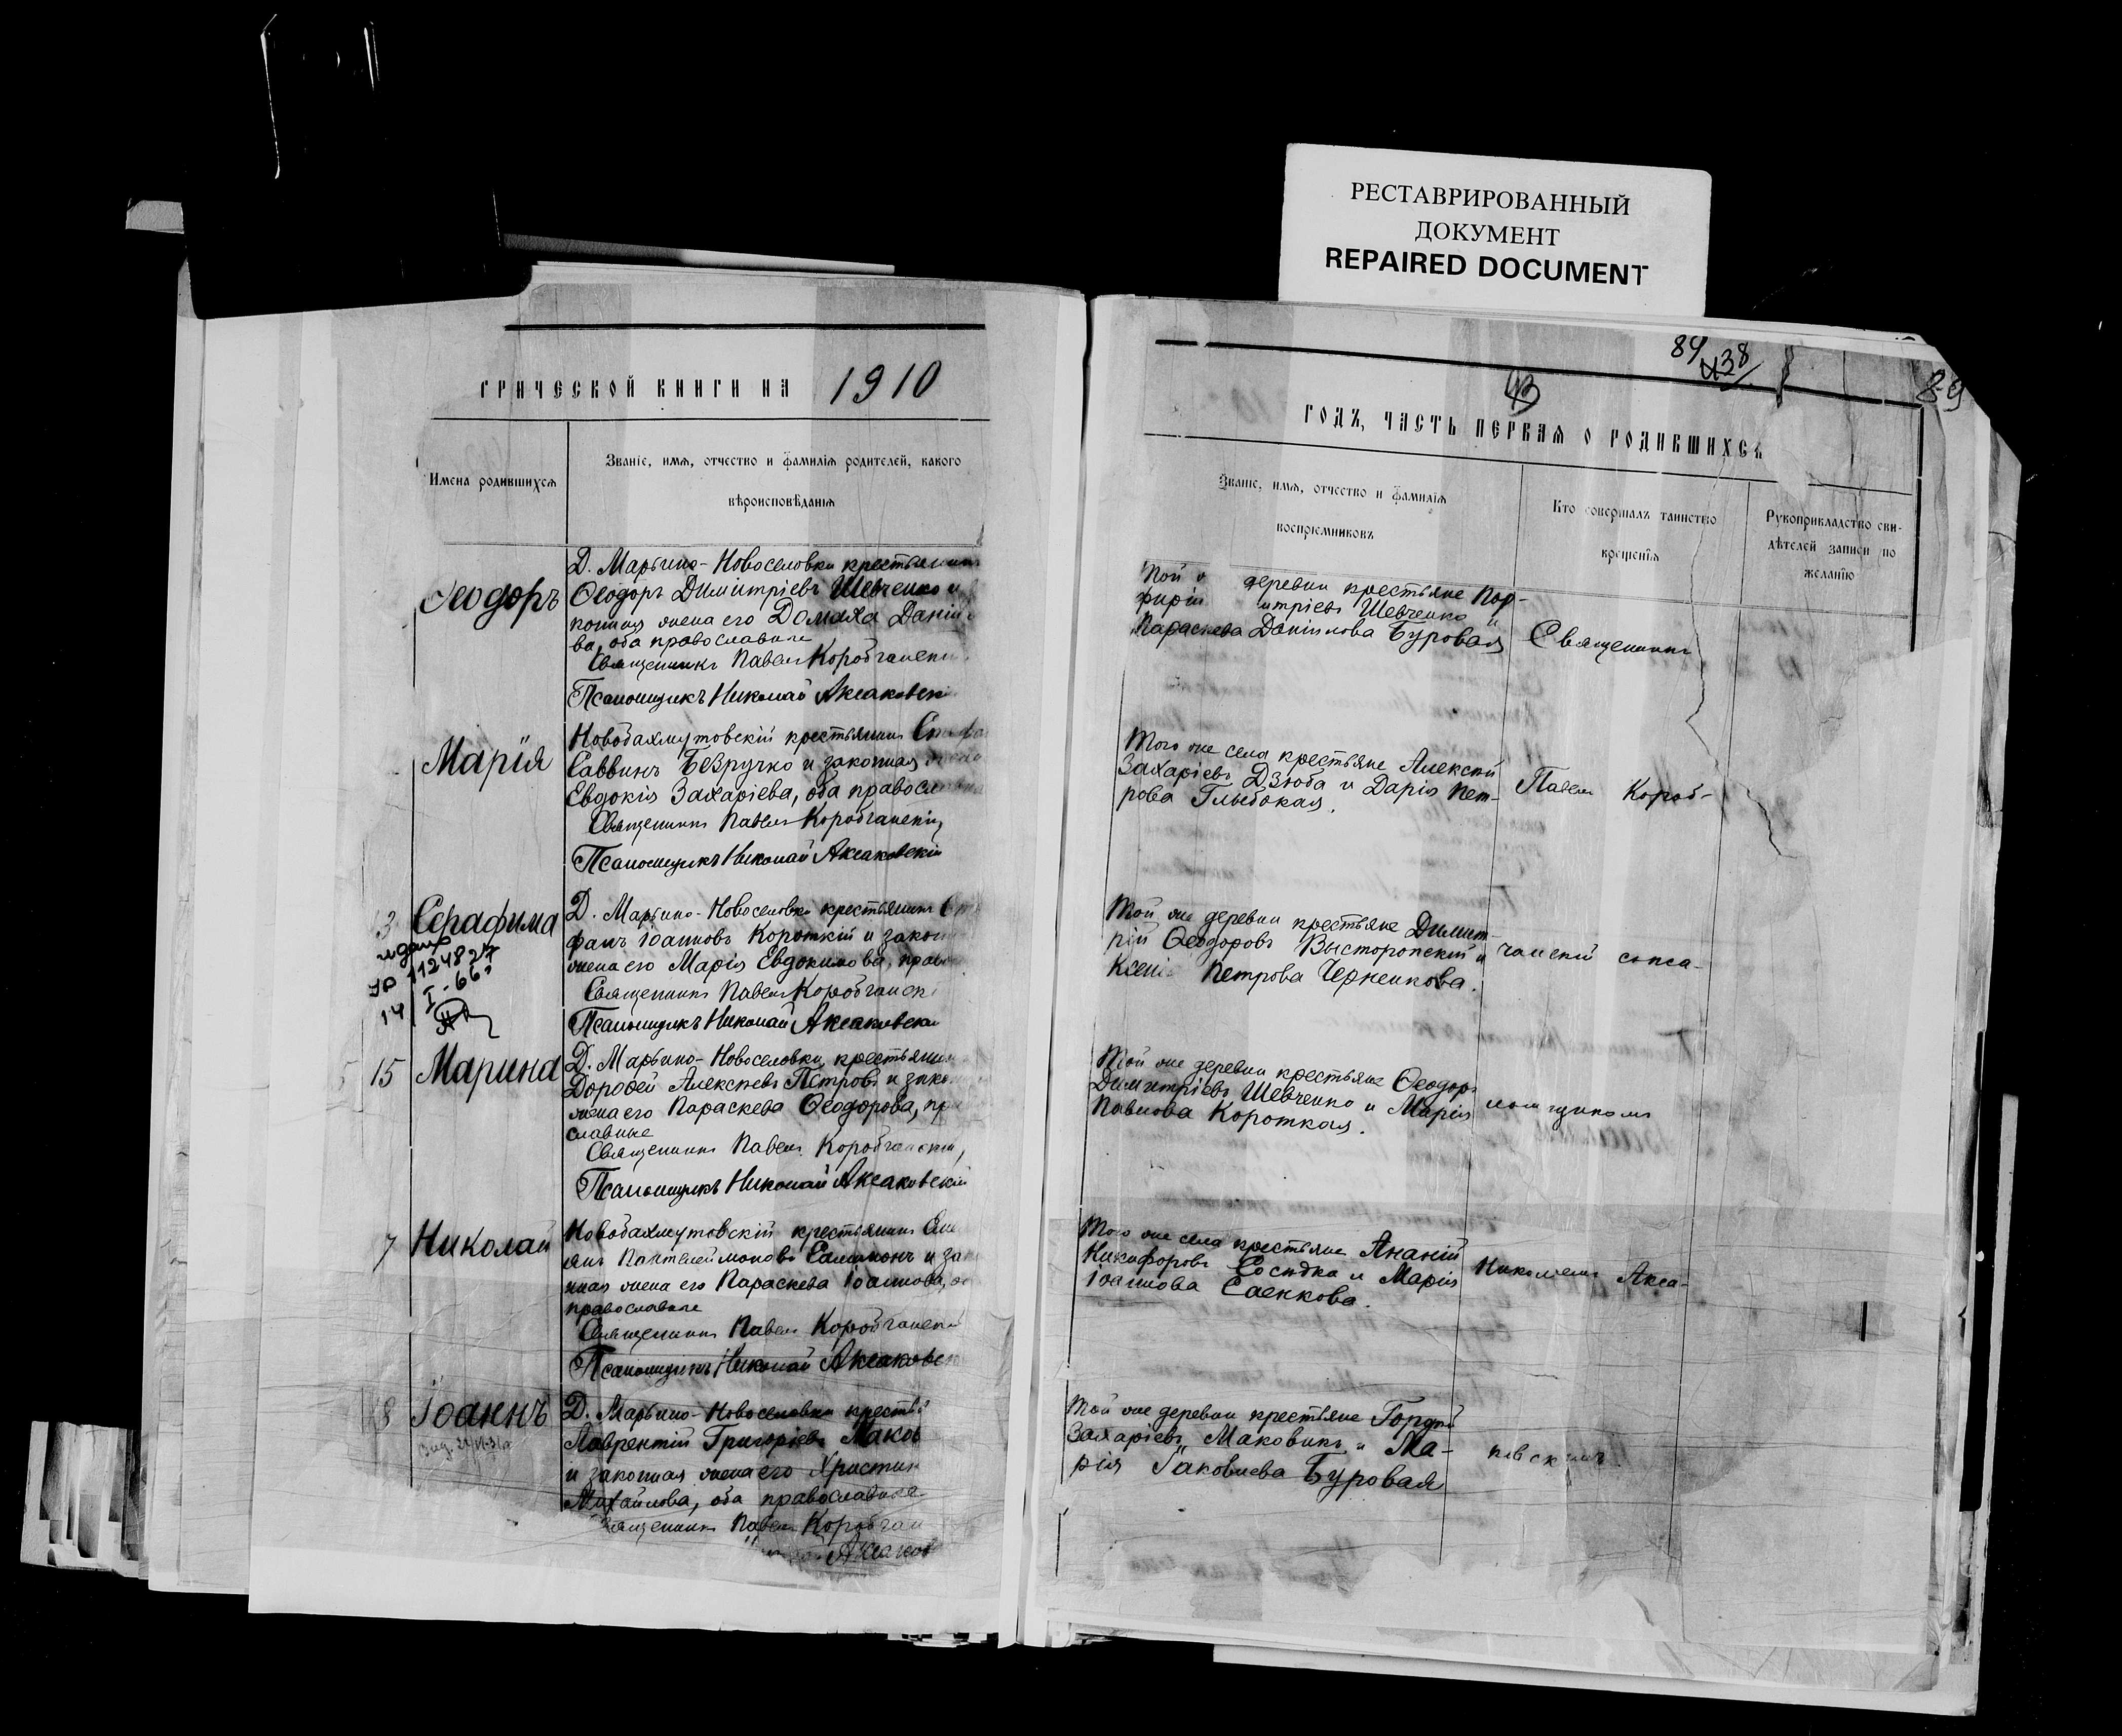 РЕСТАВРИРОВАННЫЙ
ДОКУМЕНТ
REPAIRED DOCUMENT
ТРИЧЕСКОЙ КНИГИ НА 1910
Имена родившихся
Званіе, имя, отчество и фамилія родителей, какого
вѣроисповѣданія
Ѳеодоръ
Д. Марьино-Новоселовки крестьянинъ
Ѳеодоръ Димитріевъ Шевченко и
конная жена его Домаха Даніи
ва, оба православные
Священникъ Павелъ Коробчанскі
Псаломщикъ Николай Аксаковскі
Марія
Новобахмутовскій крестьянинъ
Саввинъ Безручко и законная жена
Евдокія Захаріева, оба православные
Священникъ Павелъ Коробчанскій
Псаломщикъ Николай Аксаковскій
3 Серафима
Д. Марьино-Новоселовки крестьянинъ
фанъ Іоанновъ Короткій и закон
жена его Марія Евдокимова, право
Священникъ Павелъ Коробчанскі
Псаломщикъ Николай Аксаковскі
1124827
14 I-66
15 Марина
Д. Марьино-Новоселовки крестьянин
Дороѳей Алексѣевъ Петровъ и зако
жена его Параскева Ѳеодорова, пра
славные
Священникъ Павелъ Коробчанскій,
Псаломщикъ Николай Аксаковскій
7 Николай
Новобахмутовскій крестьянинъ
янъ Пантелеймоновъ и зак
нная жена его Параскева Іоаннова, об
православные
Священникъ Павелъ Коробчанскі
Псаломщикъ Николай Аксаковск
18 Іоаннъ
Д. Марьино-Новоселовки крестья
Лаврентій Григоріевъ Маков
и законная жена его Христин
Михайлова, оба православные
Священникъ Павелъ Коробчан
Аксаков
84
438
43
89
ГОДЪ, ЧАСТЬ ПЕРВАЯ О РОДИВШИХСЯ
Званіе, имя, отчество и фамилія
воспріемниковъ
Кто совершалъ таинство
крещенія
Рукоприкладство сви-
дѣтелей записи по
желанію
Той деревни крестьяне Пор-
фирій итріевъ Шевченко и
Параскева Даніилова Буровая
Священникъ
Того же села крестьяне Алексѣй
Захаріевъ Дзюба и Дарія Пет-
рова Глыбокая.
Павелъ Короб-
Той же деревни крестьяне Димит-
рій Ѳеодоровъ Высторопскій и
Ксенія Петрова Черненкова.
чанскій съ пса-
Той же деревни крестьяне Ѳеодоръ
Димитріевъ Шевченко и Марія
Павлова Короткая.
ломщикомъ
Того же села крестьяне Ананій
Никифоровъ Сосѣдка и Марія
Іоаннова
Николаемъ Акса-
Той же деревни крестьяне Гордѣй
Захаріевъ Маковикъ и Ма-
рія Іаковлева Буровая
ковскимъ